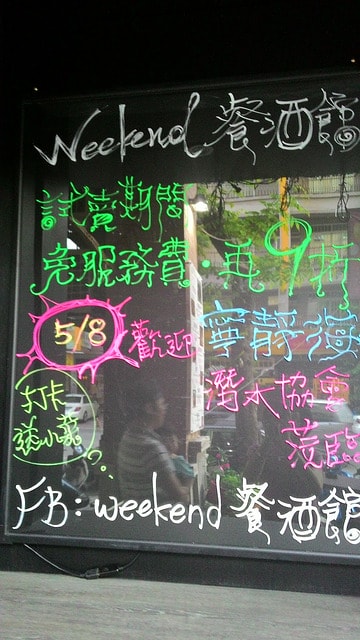 Weekend 餐酒館
試賣期間
免服務費・再9折
5/8 歡迎 寧靜海
潛水協會
蒞臨
打卡
送小菜
FB: weekend 餐酒館